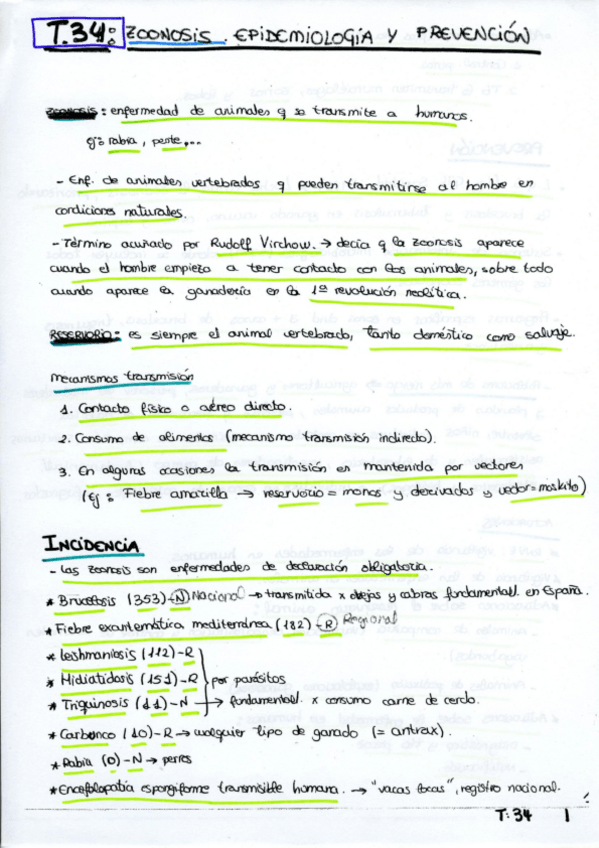 T.34: ZOONOSIS. EPIDEMIOLOGÍA Y PREVENCIÓN
ZOONOSIS: enfermedad de animales q se transmite a humanos.
ej: rabia, peste,...
- Enf. de animales vertebrados q pueden transmitirse al hombre en
condiciones naturales.
- Término acuñado por Rudolf Virchow. → decía q la zoonosis aparece
cuando el hombre empieza a tener contacto con los animales, sobre todo
cuando aparece la ganadería en la 1ª revolución neolítica.
RESERVORIO: es siempre el animal vertebrado, tanto doméstico como salvaje.
mecanismos transmisión
1. Contacto físico o aéreo directo.
2. Consumo de alimentos (mecanismo transmisión indirecto).
3. En algunas ocasiones la transmisión en mantenida por vectores
(ej: Fiebre amarilla → reservorio = monos y derivados y vector = moskito)
INCIDENCIA
- Las zoonosis son enfermedades de declaración obligatoria.
* Brucelosis (353) - N Nacional → transmitida x ovejas y cabras fundamentall. en España.
* Fiebre exantemática mediterránea (182) - R Regional
* Leishmaniosis (112) - R
* Hidiatidosis (151) - R } por parásitos
* Triquinosis (11) - N → fundamentall. x consumo carne de cerdo.
* Carbunco (10) - R → cualquier tipo de ganado (= antrax).
* Rabia (0) - N → perros
* Encefalopatía espongiforme transmisible humana. → "vacas locas", registro nacional.
T:34 1